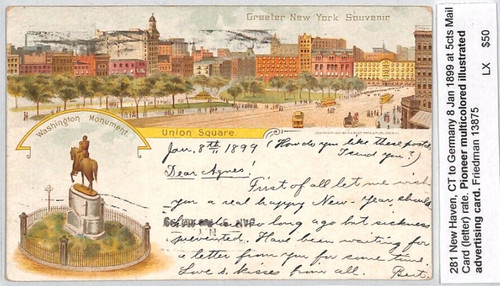 Greeter New York Souvenir
Washington Monument.
Union Square.
Jan. 8th 1899 (How do you like these postals
I send you?)
Dear Agnes!
First of all let me wish
you a real happy New-year should
so long ago but sickness
prevented. Have been waiting for
a letter from you for some time.
Love & kisses from all. Bert.
281 New Haven, CT to Germany 8 Jan 1899 at 5cts Mail
Card (letter) rate. Pioneer multicolored illustrated
advertising card. Friedman 13875
LX $50